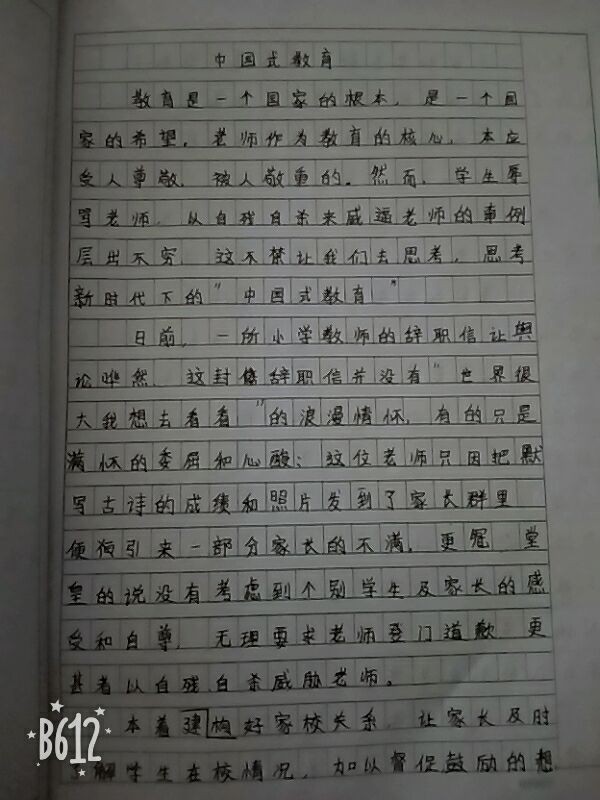 中国式教育
教育是一个国家的根本，是一个国
家的希望。老师作为教育的核心，本应
受人尊敬，被人敬重的。然而，学生辱
骂老师，从自残自杀来威逼老师的事例
层出不穷，这不禁让我们去思考，思考
新时代下的“中国式教育”
日前，一所小学教师的辞职信让舆
论哗然，这封辞职信并没有“世界很
大我想去看看”的浪漫情怀，有的只是
满怀的委屈和心酸；这位老师只因把默
写古诗的成绩和照片发到了家长群里
便引来一部分家长的不满，更冠 堂
皇的说没有考虑到个别学生及家长的感
受和自尊，无理要求老师登门道歉，更
甚者以自残自杀威胁老师。
本着建构好家校关系，让家长及时
了解学生在校情况，加以督促鼓励的想
B612